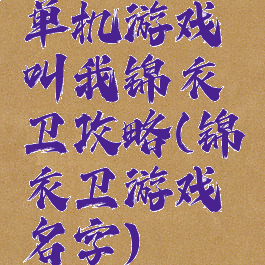 单机游戏
叫我锦衣
卫攻略(锦
衣卫游戏
名字)